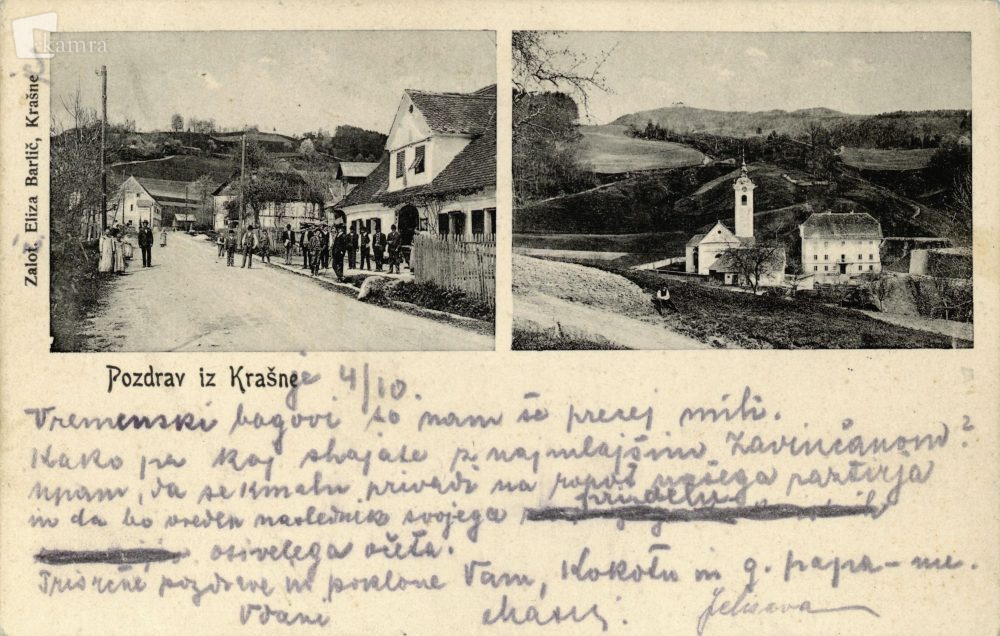 kamra
Založ. Eliza Barlič, Krašnje
Pozdrav iz Krašneje 4/10.
Vremenski bogovi so nam še precej mili.
Kako pa kaj shajate z najmlajšim Zavinčanom?
Upam, da se kmalu privadi na ropot našega
in da bo vreden naslednik svojega
osivelega očeta.
Trisrčne pozdrave in poklone Vam, Kokotu in g. papa-nu.
Vdani Jelisava